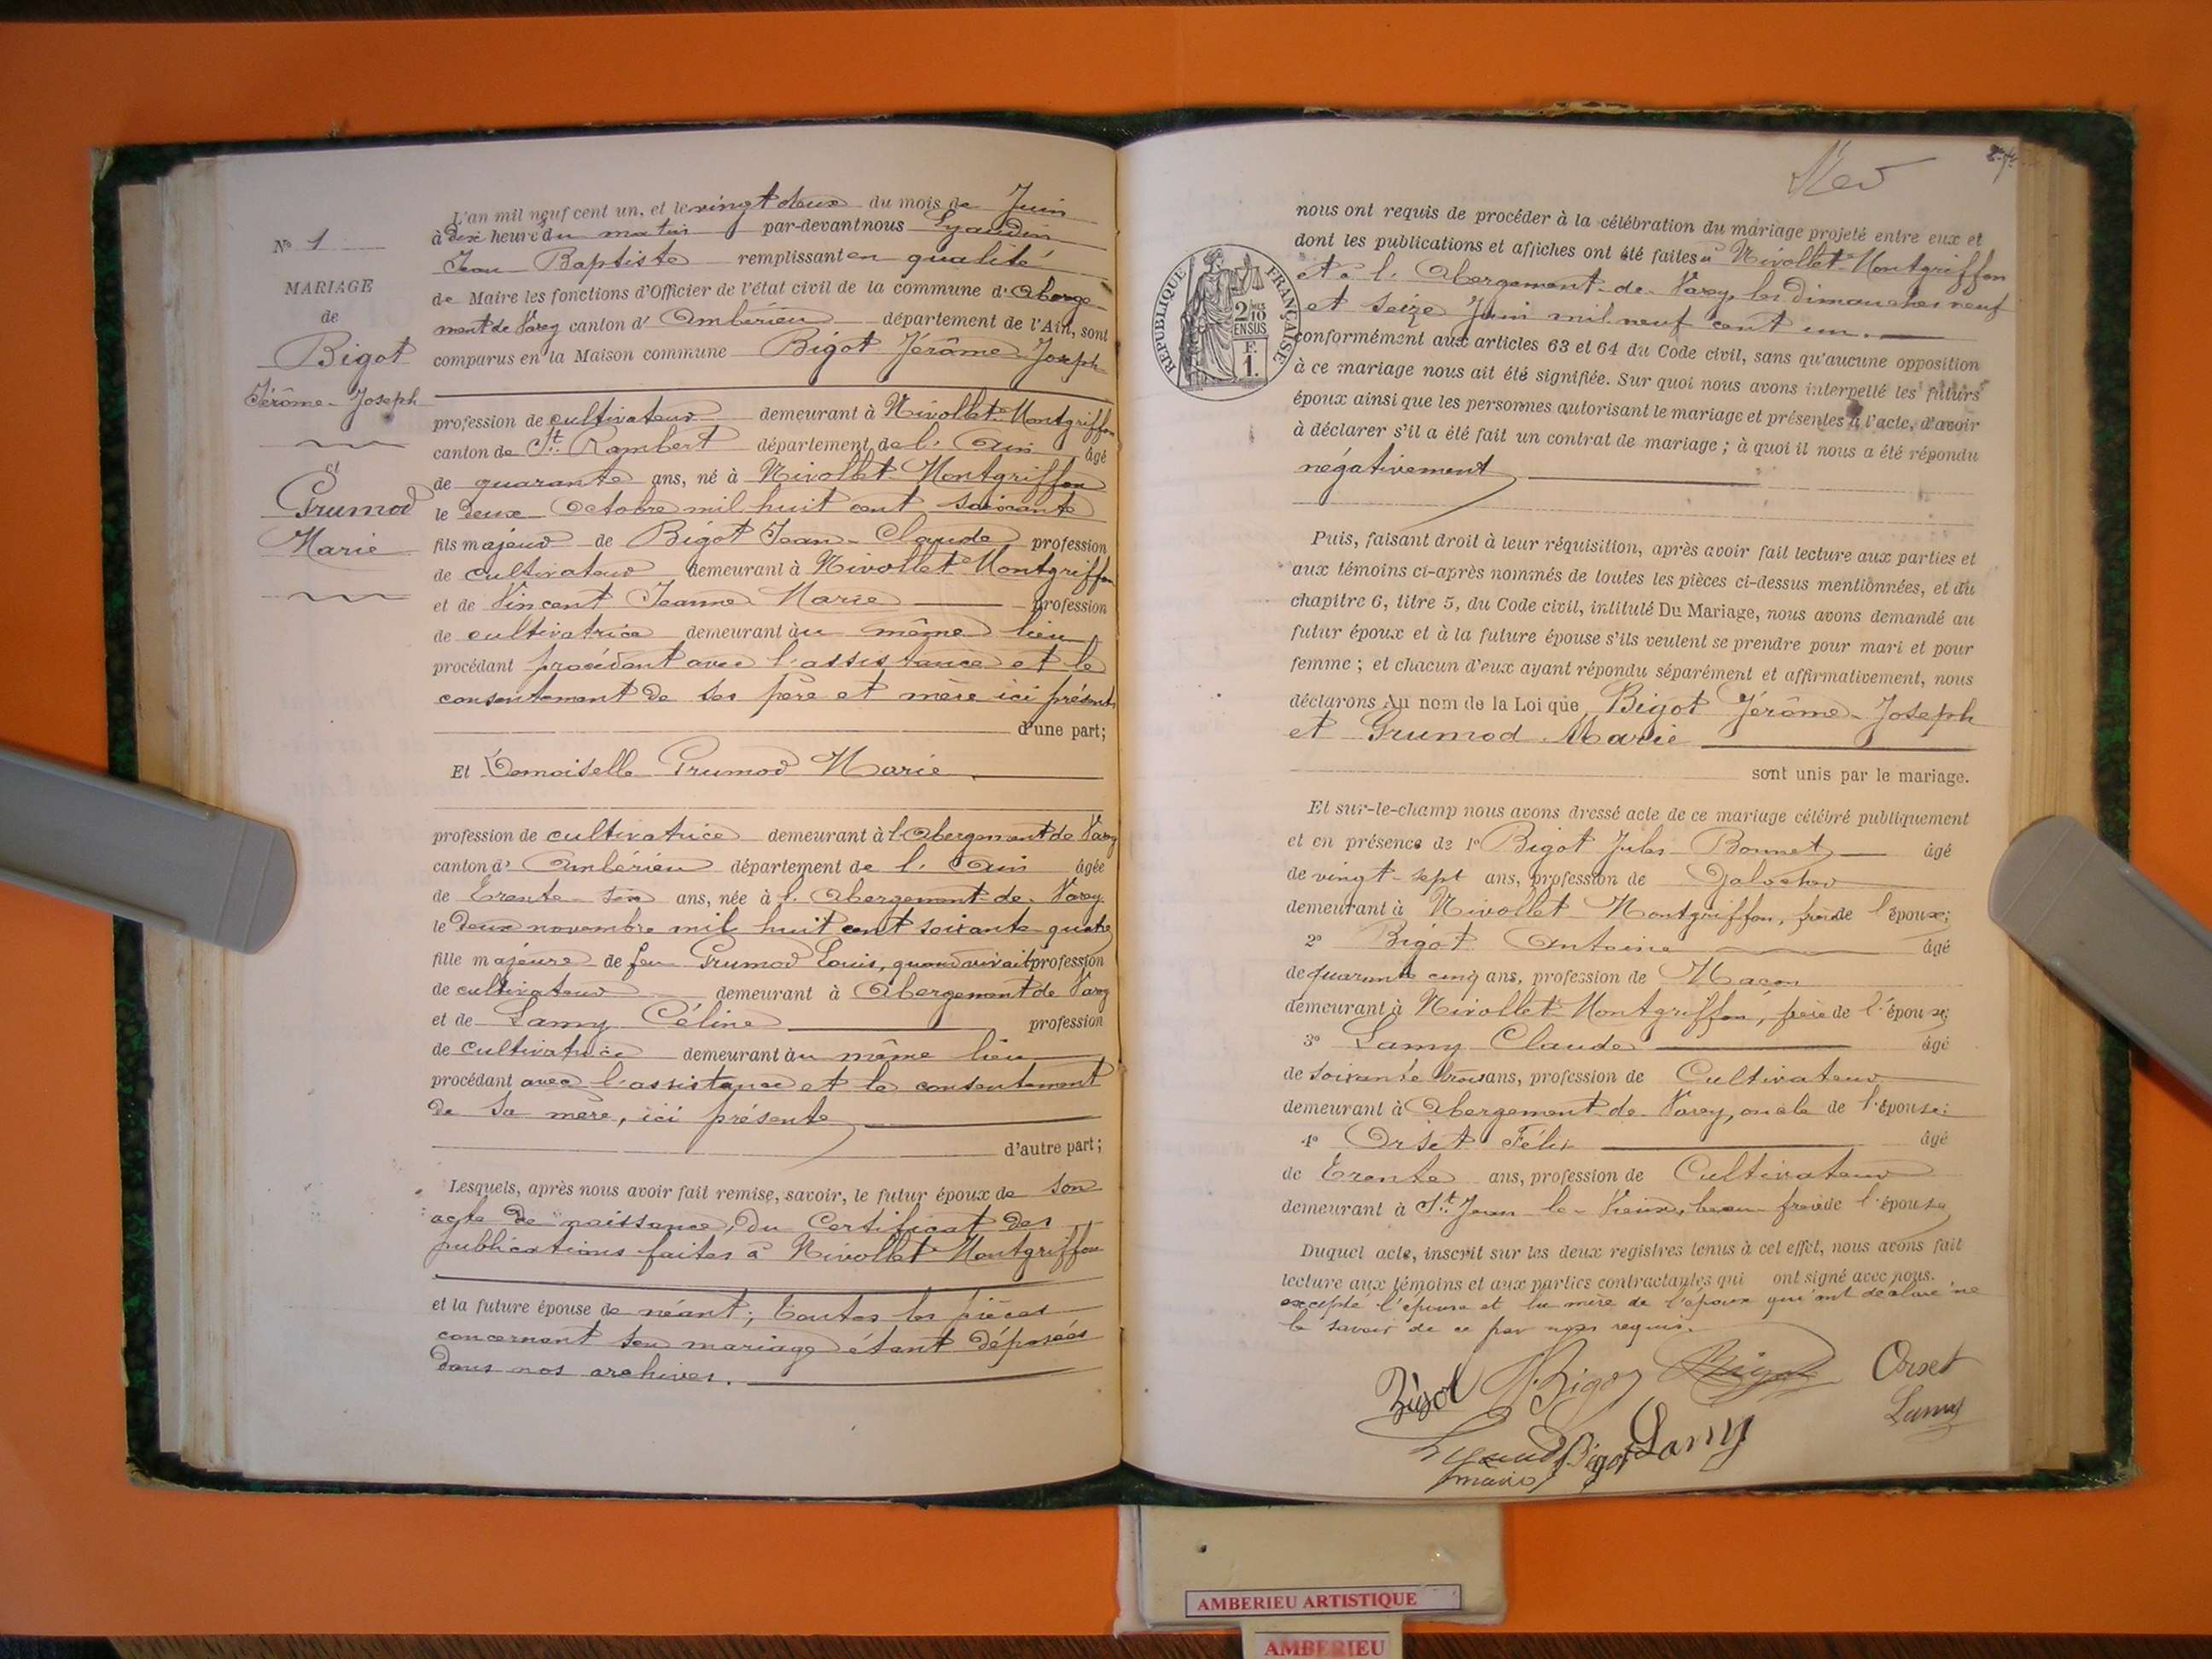 N° 1
MARIAGE
de
Bigot
Jérôme-Joseph
et
Grumod
Marie
L'an mil neuf cent un, et le vingt deux du mois de Juin
à dix heures du matin par-devant nous Lyaudin
Jean Baptiste remplissant en qualité
de Maire les fonctions d'Officier de l'état civil de la commune d'Aberge-
ment de Varey canton d'Ambérieu département de l'Ain, sont
comparus en la Maison commune Bigot Jérôme-Joseph
profession de cultivateur demeurant à Nivollet-Montgriffon
canton de St. Rambert département de l'Ain âgé
de quarante ans, né à Nivollet-Montgriffon
le deux Octobre mil huit cent soixante
fils majeur de Bigot Jean-Claude profession
de cultivateur demeurant à Nivollet-Montgriffon
et de Vincent Jeanne Marie profession
de cultivatrice demeurant au même lieu
procédant procédant avec l'assistance et le
consentement de ses père et mère ici présents
d'une part;
Et Demoiselle Grumod Marie
profession de cultivatrice demeurant à l'Abergement de Varey
canton d'Ambérieu département de l'Ain âgée
de trente-six ans, née à l'Abergement-de-Varey
le deux novembre mil huit cent soixante quatre
fille majeure de feu Grumod Louis, quand vivait profession
de cultivateur demeurant à Abergement de Varey
et de Lamy Céline profession
de cultivatrice demeurant au même lieu
procédant avec l'assistance et le consentement
de sa mère, ici présente
d'autre part;
Lesquels, après nous avoir fait remise, savoir, le futur époux de son
acte de naissance, du Certificat des
publications faites à Nivollet-Montgriffon
et la future épouse de néant; toutes les pièces
concernant son mariage étant déposées
dans nos archives.
REPUBLIQUE FRANÇAISE
2/10
EN SUS
F.
1.
nous ont requis de procéder à la célébration du mariage projeté entre eux et
dont les publications et affiches ont été faites à Nivollet-Montgriffon
et à l'Abergement-de-Varey, les dimanches neuf
et seize Juin mil neuf cent un.
conformément aux articles 63 et 64 du Code civil, sans qu'aucune opposition
à ce mariage nous ait été signifiée. Sur quoi nous avons interpellé les futurs
époux ainsi que les personnes autorisant le mariage et présentes à l'acte, d'avoir
à déclarer s'il a été fait un contrat de mariage; à quoi il nous a été répondu
négativement
Puis, faisant droit à leur réquisition, après avoir fait lecture aux parties et
aux témoins ci-après nommés de toutes les pièces ci-dessus mentionnées, et du
chapitre 6, titre 5, du Code civil, intitulé Du Mariage, nous avons demandé au
futur époux et à la future épouse s'ils veulent se prendre pour mari et pour
femme; et chacun d'eux ayant répondu séparément et affirmativement, nous
déclarons Au nom de la Loi que Bigot Jérôme-Joseph
et Grumod Marie
sont unis par le mariage.
Et sur-le-champ nous avons dressé acte de ce mariage célébré publiquement
et en présence de 1° Bigot Jules Bonnet âgé
de vingt-sept ans, profession de Galocher
demeurant à Nivollet-Montgriffon, frère de l'époux;
2° Bigot Antoine âgé
de quarante cinq ans, profession de Maçon
demeurant à Nivollet-Montgriffon, frère de l'époux;
3° Lamy Claude âgé
de soixante trois ans, profession de Cultivateur
demeurant à Abergement-de-Varey, oncle de l'épouse;
4° Orset Félix âgé
de trente ans, profession de Cultivateur
demeurant à St. Jean-le-Vieux, beau-frère de l'épouse
Duquel acte, inscrit sur les deux registres tenus à cet effet, nous avons fait
lecture aux témoins et aux parties contractantes qui ont signé avec nous.
excepté l'épouse et la mère de l'époux qui ont déclaré ne
le savoir de ce par nous requis.
Bigot J. Bigot Bigot Orset
Lamy
Bigot Lamy
maire
AMBERIEU ARTISTIQUE
AMBERIEU